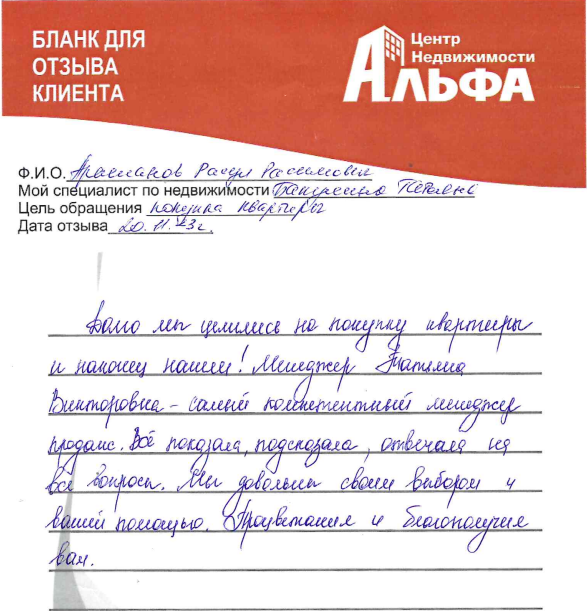 БЛАНК ДЛЯ
ОТЗЫВА
КЛИЕНТА
Центр
Недвижимости
АЛЬФА
Ф.И.О. Расимович
Мой специалист по недвижимости Татьяна
Цель обращения покупка квартиры
Дата отзыва 20.11.23г.
мы целились на покупку квартиры
и наконец нашли! Менеджер Татьяна
Викторовна - самый компетентный менеджер
продаж. Всё показала, подсказала, отвечала на
все вопросы. Мы довольны своим выбором и
вашей помощью. Процветания и благополучия
вам.